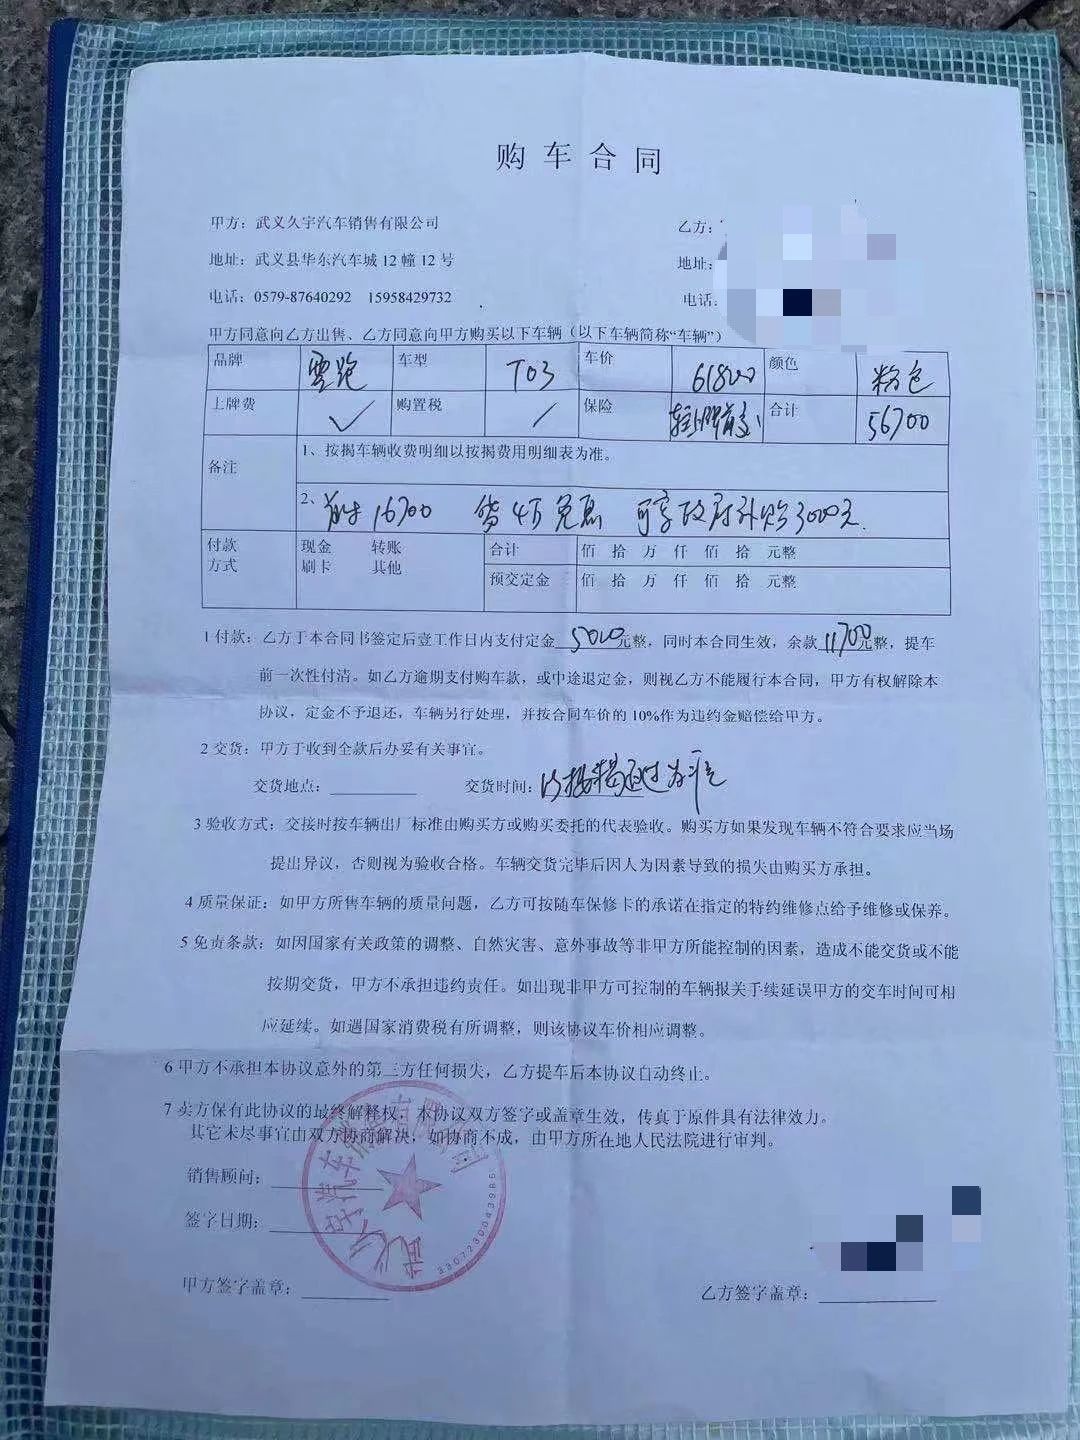 购车合同
甲方：武义久宇汽车销售有限公司 乙方：
地址：武义县华东汽车城12幢12号 地址：
电话：0579-87640292 15958429732 电话：
甲方同意向乙方出售、乙方同意向甲方购买以下车辆（以下车辆简称“车辆”）
品牌 零跑 车型 T03 车价 61800 颜色 粉色
上牌费 ✓ 购置税 / 保险 合计 56700
备注 1、按揭车辆收费明细以按揭费用明细表为准。
2、首付16700 贷4万免息 可享政府补贴3000元.
付款方式 现金 转账 合计 佰 拾 万 仟 佰 拾 元整
刷卡 其他 预交定金 佰 拾 万 仟 佰 拾 元整
1付款：乙方于本合同书签定后壹工作日内支付定金5000元整，同时本合同生效，余款11700元整，提车
前一次性付清。如乙方逾期支付购车款，或中途退定金，则视乙方不能履行本合同，甲方有权解除本
协议，定金不予退还，车辆另行处理，并按合同车价的10%作为违约金赔偿给甲方。
2交货：甲方于收到全款后办妥有关事宜。
交货地点： 交货时间：以按揭通过为准
3验收方式：交接时按车辆出厂标准由购买方或购买委托的代表验收。购买方如果发现车辆不符合要求应当场
提出异议，否则视为验收合格。车辆交货完毕后因人为因素导致的损失由购买方承担。
4质量保证：如甲方所售车辆的质量问题，乙方可按随车保修卡的承诺在指定的特约维修点给予维修或保养。
5免责条款：如因国家有关政策的调整、自然灾害、意外事故等非甲方所能控制的因素，造成不能交货或不能
按期交货，甲方不承担违约责任。如出现非甲方可控制的车辆报关手续延误甲方的交车时间可相
应延续。如遇国家消费税有所调整，则该协议车价相应调整。
6甲方不承担本协议意外的第三方任何损失，乙方提车后本协议自动终止。
7卖方保有此协议的最终解释权，本协议双方签字或盖章生效，传真于原件具有法律效力。
其它未尽事宜由双方协商解决，如协商不成，由甲方所在地人民法院进行审判。
销售顾问：
签字日期：
甲方签字盖章： 乙方签字盖章：
武义久宇汽车销售有限公司
3307230043986